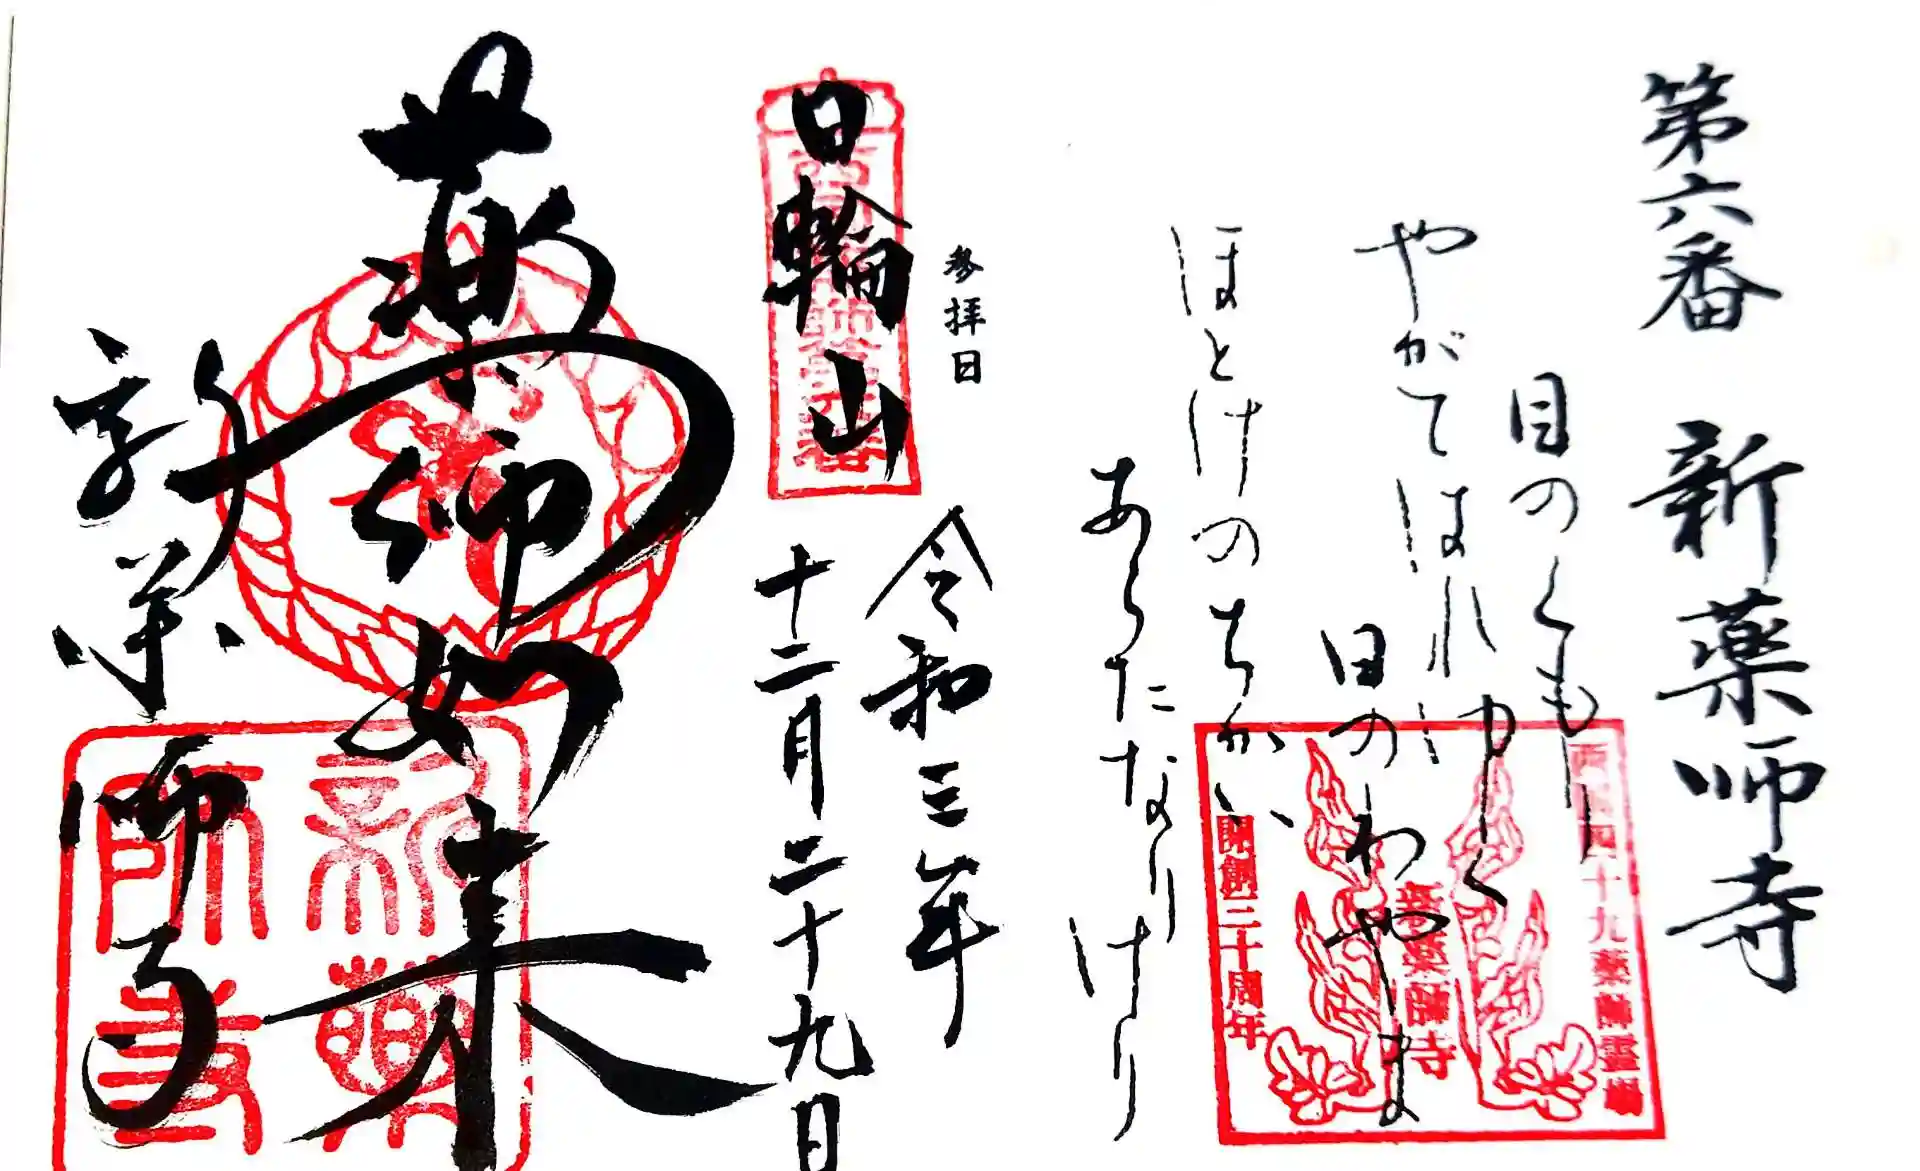 第六番 新薬師寺
目のくもり
やがてはれゆく
日のわやま
ほとけのちかい
あらたなりけり
西國四十九薬師霊場
新薬師寺
開創三十周年
参拝日
令和三年
十二月二十九日
日輪山
薬師如来
新薬師寺
新薬師寺